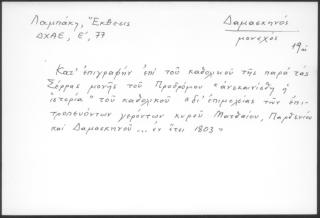 Λαμπάκη, Ἔκθεσις
Δαμασκηνός
ΔΧΑΕ, Ε', 77
μοναχος
19ω
Κατ' ἐπιγραφήν ἐπί τοῦ καθολικοῦ τῆς παρά τάς
Σέρρας μονῆς τοῦ Προδρόμου "ἀνεκαινίσθη ἡ
ἱστορία" τοῦ καθολικοῦ "δι' ἐπιμελείας τῶν ἐπι-
τροπευόντων γερόντων κυροῦ Ματθαίου, Παρθενίου
καί Δαμασκηνοῦ ... ἐν ἔτει 1803"